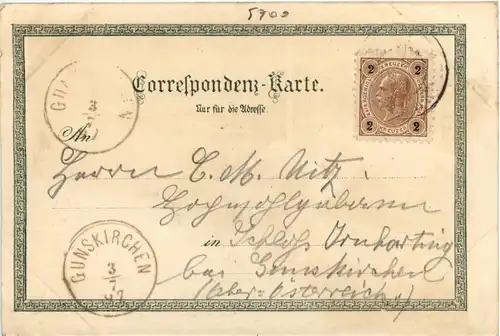 5900
Correspondenz-Karte.
Nur für die Adresse.
An
Herrn C. M. Nitz.
Hochwohlgeboren
in Schloß Irnharting
bei Gunskirchen
(Ober-Österreich.)
2 2
2 KREUZER 2
GUNSKIRCHEN
3
97